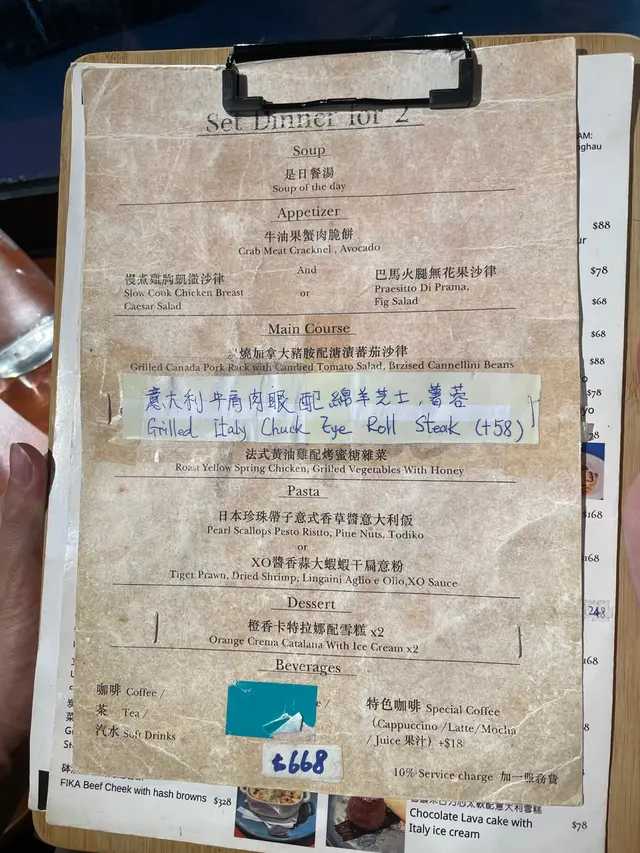 Set Dinner for 2
Soup
是日餐湯
Soup of the day
Appetizer
牛油果蟹肉脆餅
Crab Meat Cracknel , Avocado
And
慢煮雞胸凱撒沙律
Slow Cook Chicken Breast
Caesar Salad
or
巴馬火腿無花果沙律
Praesitto Di Prama,
Fig Salad
Main Course
炭燒加拿大豬胺配漬蕃茄沙律
Grilled Canada Pork Rack with Candied Tomato Salad, Brzised Cannellini Beans
意大利牛肩肉眼配綿羊芝士,薯蓉
Grilled Italy Chuck Eye Roll Steak (+58)
法式黃油雞配烤蜜糖雜菜
Roast Yellow Spring Chicken, Grilled Vegetables With Honey
Pasta
日本珍珠帶子意式香草醬意大利飯
Pearl Scallops Pesto Ristto, Pine Nuts, Todiko
or
XO醬香蒜大蝦蝦干扁意粉
Tiger Prawn, Dried Shrimp, Lingaini Aglio e Olio,XO Sauce
Dessert
橙香卡特拉娜配雪糕 x2
Orange Crema Catalana With Ice Cream x2
Beverages
咖啡 Coffee /
茶 Tea /
汽水 Soft Drinks
特色咖啡 Special Coffee
(Cappuccino /Latte/Mocha
/ Juice 果汁) +$18
$668
10% Service charge 加一服務費
AM:
$88
$78
$68
$68
$88
$78
$168
248
FIKA Beef Cheek with hash browns $328
Chocolate Lava cake with
Italy ice cream
$78